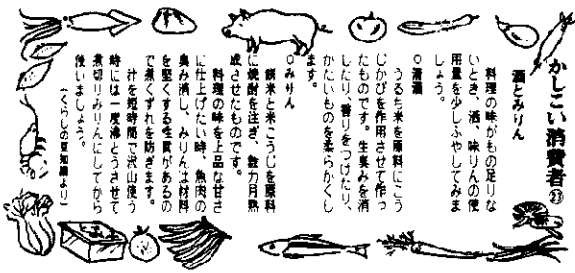 かしこい消費者㉓
酒とみりん
料理の味がもの足りな
いとき、酒、味りんの使
用量を少しふやしてみま
しょう。
○清酒
うるち米を原料にこう
じかびを作用させて作っ
たものです。生臭みを消
したり、香りをつけたり、
かたいものを柔らかくし
ます。
○みりん
餅米と米こうじを原料
に焼酎を注ぎ、数カ月熟
成させたものです。
料理の味を上品な甘さ
に仕上げたい時、魚肉の
臭み消し、みりんは材料
を堅くする性質があるの
で煮くずれを防ぎます。
汁を短時間で沢山使う
時には一度沸とうさせて
煮切りみりんにしてから
使いましょう。
(くらしの豆知識より)